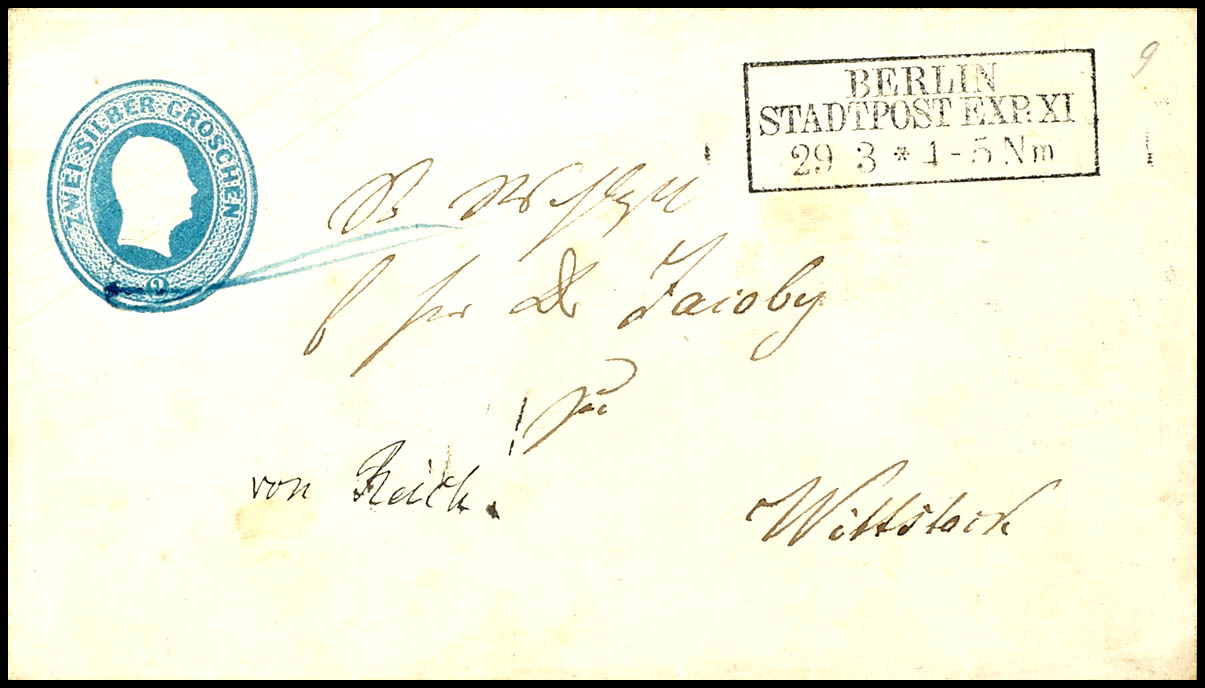 ZWEI SILBER-GROSCHEN
2
BERLIN
STADTPOST EXP. XI
29 3 * 4-5 Nm
9
Dr Jacoby
zu
von Reich!
Wittstock